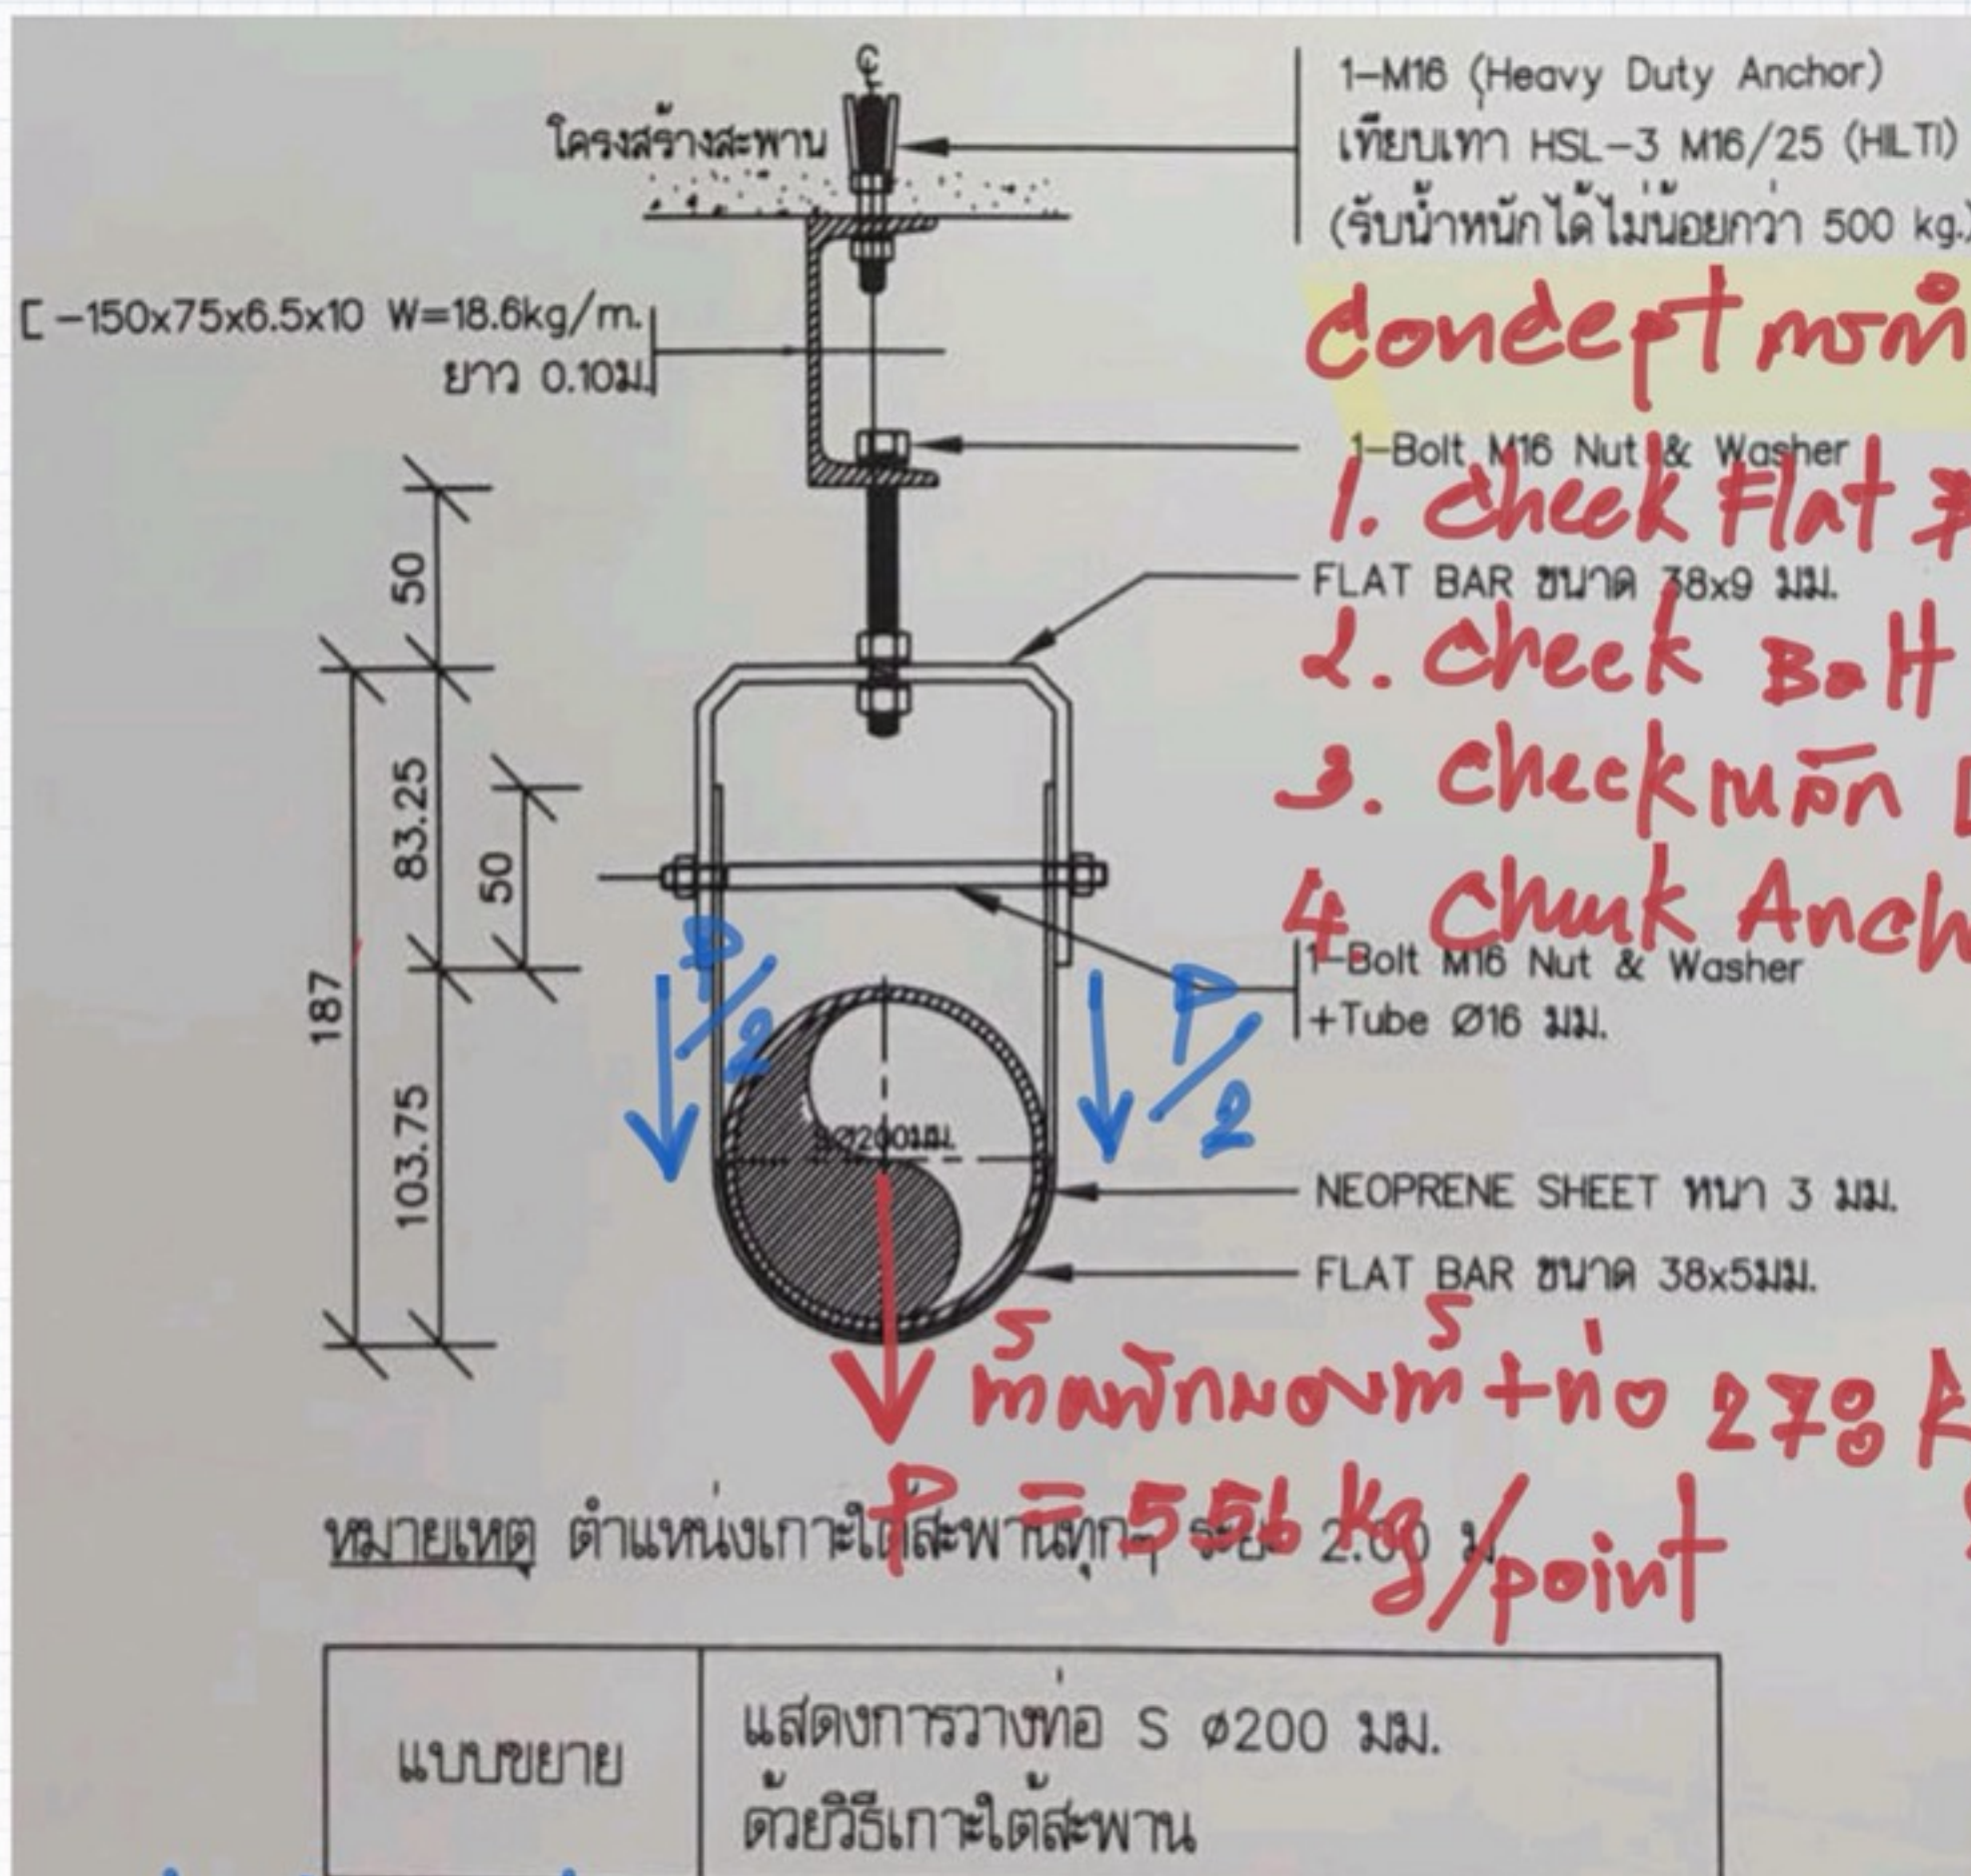 ℄
โครงสร้างสะพาน
1-M16 (Heavy Duty Anchor)
เทียบเท่า HSL-3 M16/25 (HILTI)
(รับน้ำหนักได้ไม่น้อยกว่า 500 kg.)
[-150x75x6.5x10 W=18.6kg/m.
ยาว 0.10ม.
Concept การทำ
1-Bolt M16 Nut & Washer
1. Check Flat
FLAT BAR ขนาด 38x9 มม.
2. Check Bolt
3. Check เหล็ก [
4. Check Anch
1-Bolt M16 Nut & Washer
+Tube Ø16 มม.
50
83.25
50
187
103.75
P/2
P/2
Ø200มม.
NEOPRENE SHEET หนา 3 มม.
FLAT BAR ขนาด 38x5มม.
น้ำหนักของน้ำ + ท่อ 278 k
P = 556 kg/point
หมายเหตุ ตำแหน่งเกาะใต้สะพานทุกๆ ระยะ 2.00 ม.
แบบขยาย
แสดงการวางท่อ S ø200 มม.
ด้วยวิธีเกาะใต้สะพาน